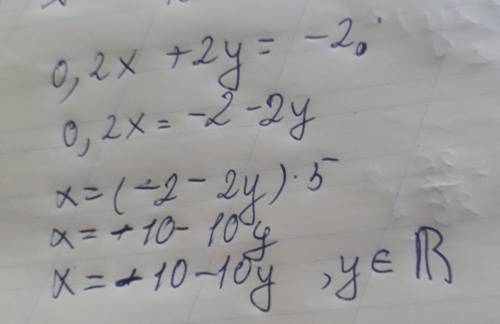 0,2x + 2y = -2
0,2x = -2 - 2y
x = (-2 - 2y) · 5
x = -10 - 10y
x = -10 - 10y , y ∈ ℝ